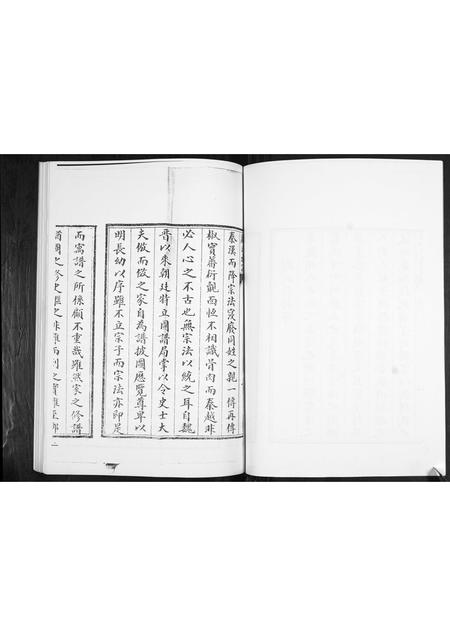 秦漢而降宗法寖廢同姓之親一傳再傳
椒實蕃衍覿面恒不相識骨肉而秦越非
必人心之不古也無宗法以統之耳自魏
晉以來朝廷特立圖譜局掌以令史士大
夫倣而做之家自為譜披圖應覽尊卑以
明長幼以序雖不立宗子而宗法亦即足
而寓譜之所係顧不重哉雖然家之修譜
猶國之修史難之非難而則之實難至